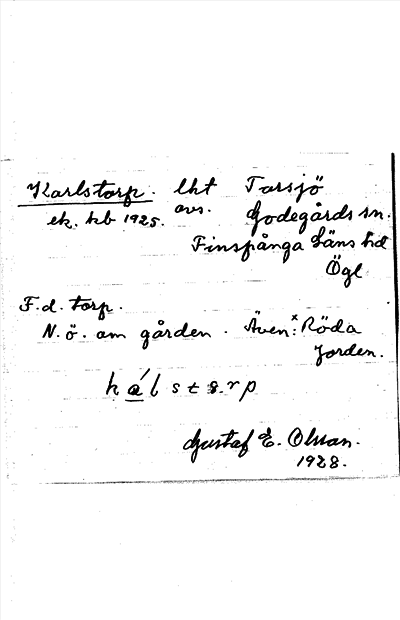 Karlstorp. lht Torsjö
ek. kb 1925. avs. Godegårds sn.
Finspånga Läns hd
Ögl
F.d. torp.
N.ö. om gården. Även: x Röda
Jorden.
Gustaf E. Olsson.
1928.